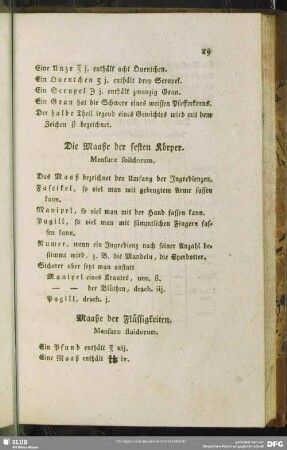 29
Eine Unze ℥ j. enthält acht Quentchen.
Ein Quentchen ʒ j. enthält drey Scrupel.
Ein Scrupel ℈ j. enthält zwanzig Gran.
Ein Gran hat die Schwere eines weissen Pfefferkorns.
Der halbe Theil irgend eines Gewichtes wird mit dem
Zeichen ß bezeichnet.
Die Maaße der festen Körper.
Mensuræ solidorum.
Das Maaß bezeichnet den Umfang der Ingredienzen.
Fascikel, so viel man mit gebeugtem Arme fassen
kann.
Manipel, so viel man mit der Hand fassen kann.
Pugill, so viel man mit sämmtlichen Fingern fas-
sen kann.
Numer, wenn ein Ingredienz nach seiner Anzahl be-
stimmt wird, z. B. die Mandeln, die Eyerdotter.
Sicherer aber setzt man anstatt
Manipel eines Krautes, unc. ß.
— — der Blüthen, drach. iij.
Pugill, drach. j.
Maaße der Flüssigkeiten.
Mensuræ fluidorum.
Ein Pfund enthält ℥ xij.
Eine Maaß enthält ℔ iv.
SLUB
Wir führen Wissen.
DFG